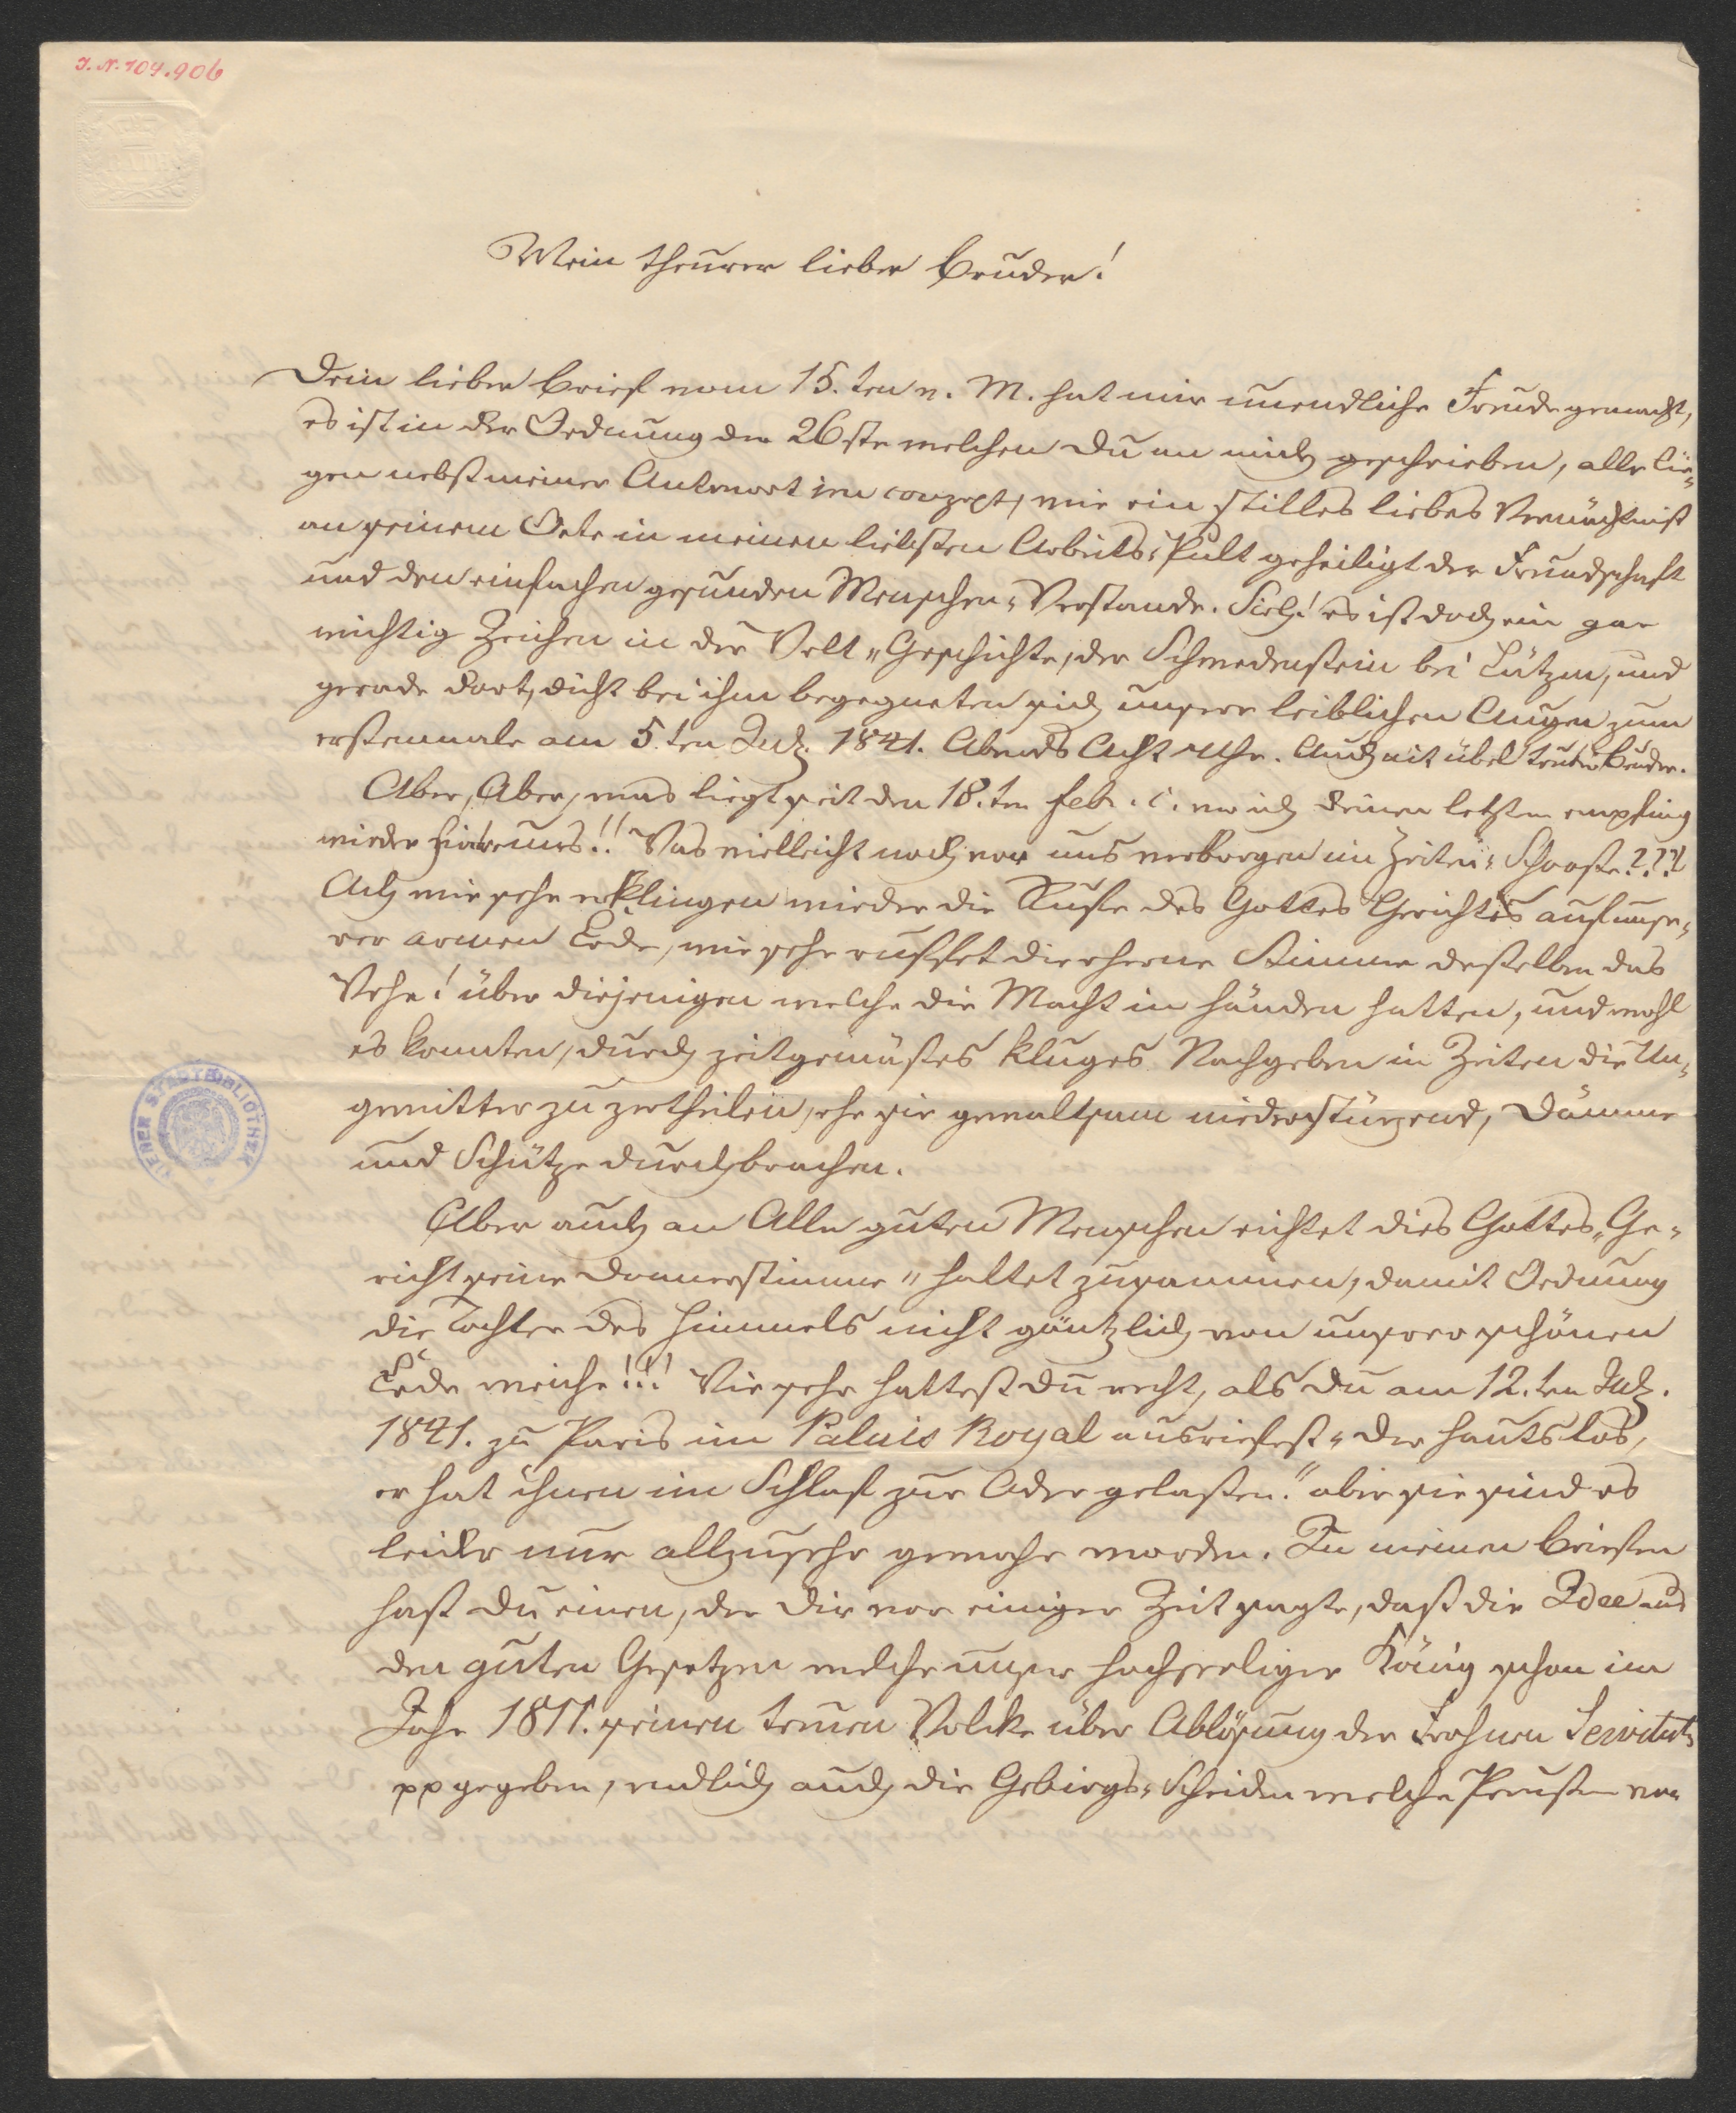 J. N. 104.906
Mein theurer lieber Bruder!
Dein lieber Brief vom 15.ten v. M. hat mir unendliche Freude gemacht,
es ist in der Ordnung der 26ste welchen Du an mich geschrieben, alle lie-
gen nebst meiner Antwort im conzept, wie ein stilles liebes Vermächtniß
an seinem Orte in meinem liebsten Arbeits-Pult geheiligt der Freundschaft
und den einfachen gesunden Menschen-Verstande. Sieh! es ist doch ein gar
wichtig Zeichen in der Welt-Geschichte, der Schwedenstein bei Lützen, und
gerade dort, dicht bei ihm begegneten sich unsere leiblichen Augen zum
erstenmale am 5.ten July. 1841. Abends Acht Uhr. Auch nit übel trauter Bruder.
Aber, Aber, was liegt seit den 18.ten Feb. c. wo ich Deinen letzten empfing
wieder hinter uns!! Was vielleicht noch vor uns verborgen im Zeiten-Schooße???!
Ach wie sehr erklingen wieder die Rufe des Gottes Gerichtes auf unse-
rer armen Erde, wie sehr ruffet die eherne Stimme deßelben das
Wehe! über diejenigen welche die Macht in Händen hatten, und wohl
es konnten, durch zeitgemäßes kluges Nachgeben in Zeiten die Un-
gewitter zu zertheilen, ehe sie gewaltsam niederstürzend, Dämme
und Schütze durchbrachen.
Aber auch an Alle guten Menschen richtet dies Gottes-Ge-
richt seine Donnerstimme „haltet zusammen, damit Ordnung
die Tochter des Himmels nicht gäntzlich von unsrer schönen
Erde weiche!!! Wie sehr hattest Du recht, als Du am 12.ten July.
1841. zu Paris im Palais Royal ausriefest „Der hauts los,
er hat ihnen im Schlaf zur Ader gelaßen." aber sie sind es
leider nur allzusehr gewahr worden. In meinen Briefen
hast Du einen, der Dir vor einiger Zeit sagte, daß die Idee aus
den guten Gesetzen welche unser hochseeliger König schon im
Jahr 1811. seinen treuen Volcke über Ablösung der Frohnen Servituts
pp gegeben, endlich auch die Gebirgs-Scheiden welche Preußen von
WIENER STADTBIBLIOTHEK